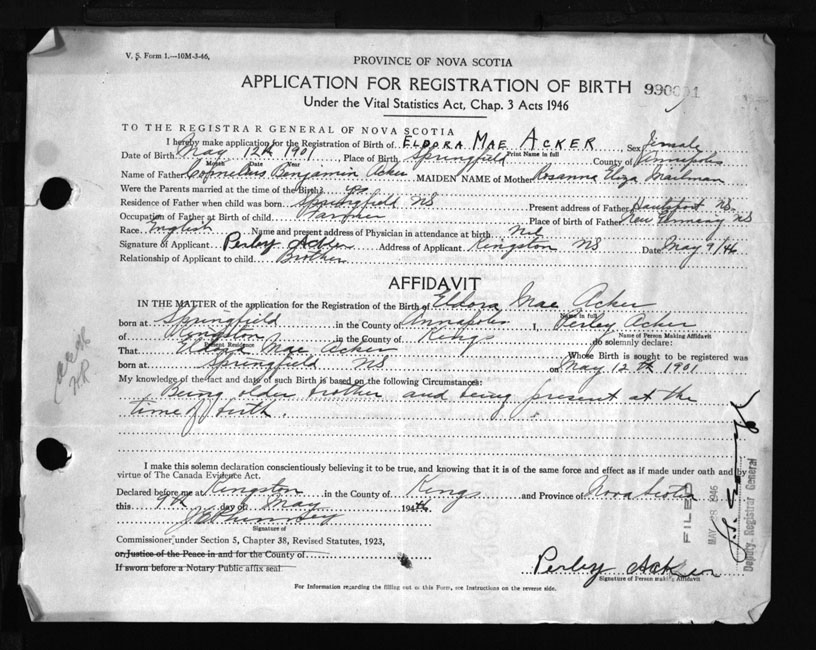 V. S. Form 1.—10M-3-46.
PROVINCE OF NOVA SCOTIA
APPLICATION FOR REGISTRATION OF BIRTH
Under the Vital Statistics Act, Chap. 3 Acts 1946
TO THE REGISTRAR GENERAL OF NOVA SCOTIA
I hereby make application for the Registration of Birth of ELDORA MAE ACKER Sex Female
Print Name in full
Date of Birth May 12th 1901 Place of Birth Springfield County of Annapolis
Month Date Year
Name of Father Cornelius Benjamin Acker MAIDEN NAME of Mother Rosanna Eliza Mailman
Were the Parents married at the time of the Birth? yes
Residence of Father when child was born Springfield NS Present address of Father Hantsport NS
Occupation of Father at Birth of child Farmer Place of Birth of Father New Germany NS
Race English Name and present address of Physician in attendance at birth Nil
Signature of Applicant Perley Acker Address of Applicant Kingston NS Date May 9/46
Relationship of Applicant to child Brother
AFFIDAVIT
IN THE MATTER of the application for the Registration of the Birth of Eldora Mae Acker
Name in full
born at Springfield in the County of Annapolis I, Perley Acker
Name of Person Making Affidavit
of Kingston in the County of Kings do solemnly declare:
Present Residence
That Eldora Mae Acker Whose Birth is sought to be registered was
born at Springfield NS on May 12th 1901
My knowledge of the fact and date of such Birth is based on the following Circumstances:
Being older brother and being present at the
time of birth.
I make this solemn declaration conscientiously believing it to be true, and knowing that it is of the same force and effect as if made under oath and by
virtue of The Canada Evidence Act.
Declared before me at Kingston in the County of Kings and Province of Nova Scotia
this 9th day of May 1946
Signature of
Commissioner under Section 5, Chapter 38, Revised Statutes, 1923,
or Justice of the Peace in and for the County of
If sworn before a Notary Public affix seal
Perley Acker
Signature of Person making Affidavit
For Information regarding the filling out of this Form, see Instructions on the reverse side.
FILED
MAY 28 1946
Deputy Registrar General